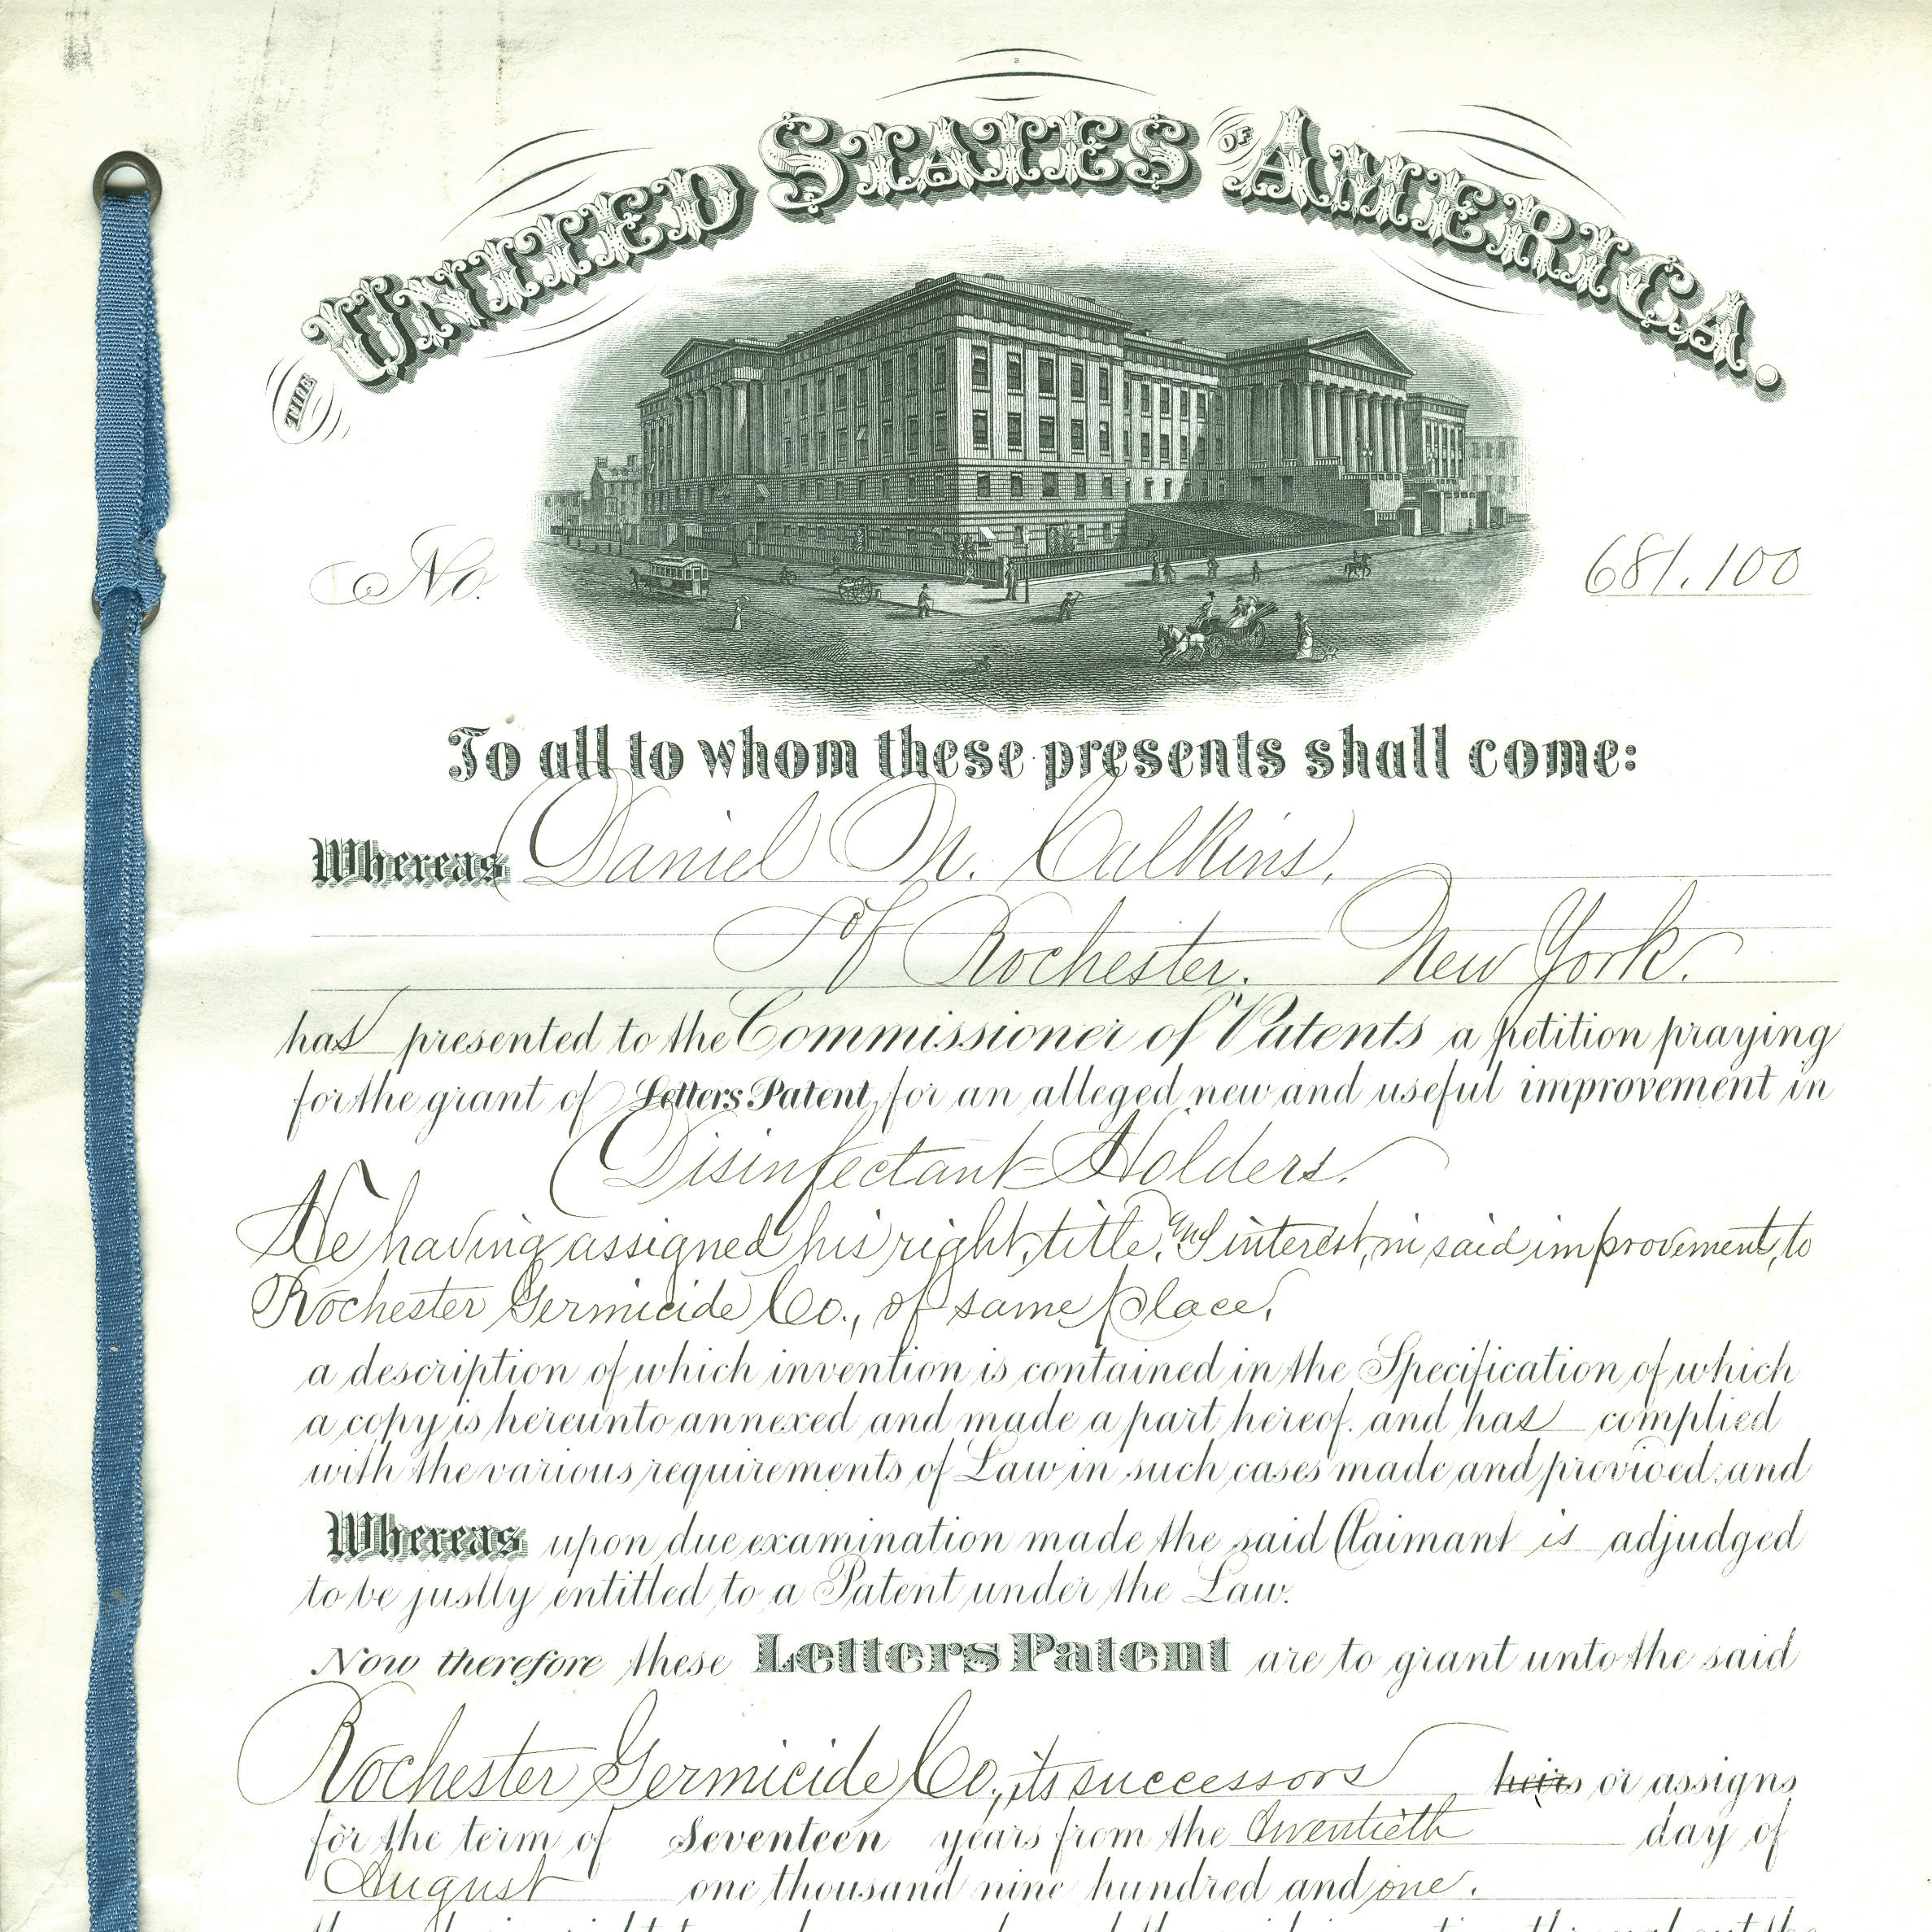 THE UNITED STATES OF AMERICA.
No. 681.100
To all to whom these presents shall come:
Whereas Daniel M. Calkins,
of Rochester. New York.
has presented to the Commissioner of Patents a petition praying
for the grant of Letters Patent for an alleged new and useful improvement in
Disinfectant-Holders.
He having assigned his right, title, and interest, in said improvement, to
Rochester Germicide Co., of same place,
a description of which invention is contained in the Specification of which
a copy is hereunto annexed and made a part hereof. and has complied
with the various requirements of Law in such cases made and provided, and
Whereas upon due examination made the said Claimant is adjudged
to be justly entitled to a Patent under the Law.
Now therefore these Letters Patent are to grant unto the said
Rochester Germicide Co., its successors heirs or assigns
for the term of Seventeen years from the twentieth day of
August one thousand nine hundred and one.